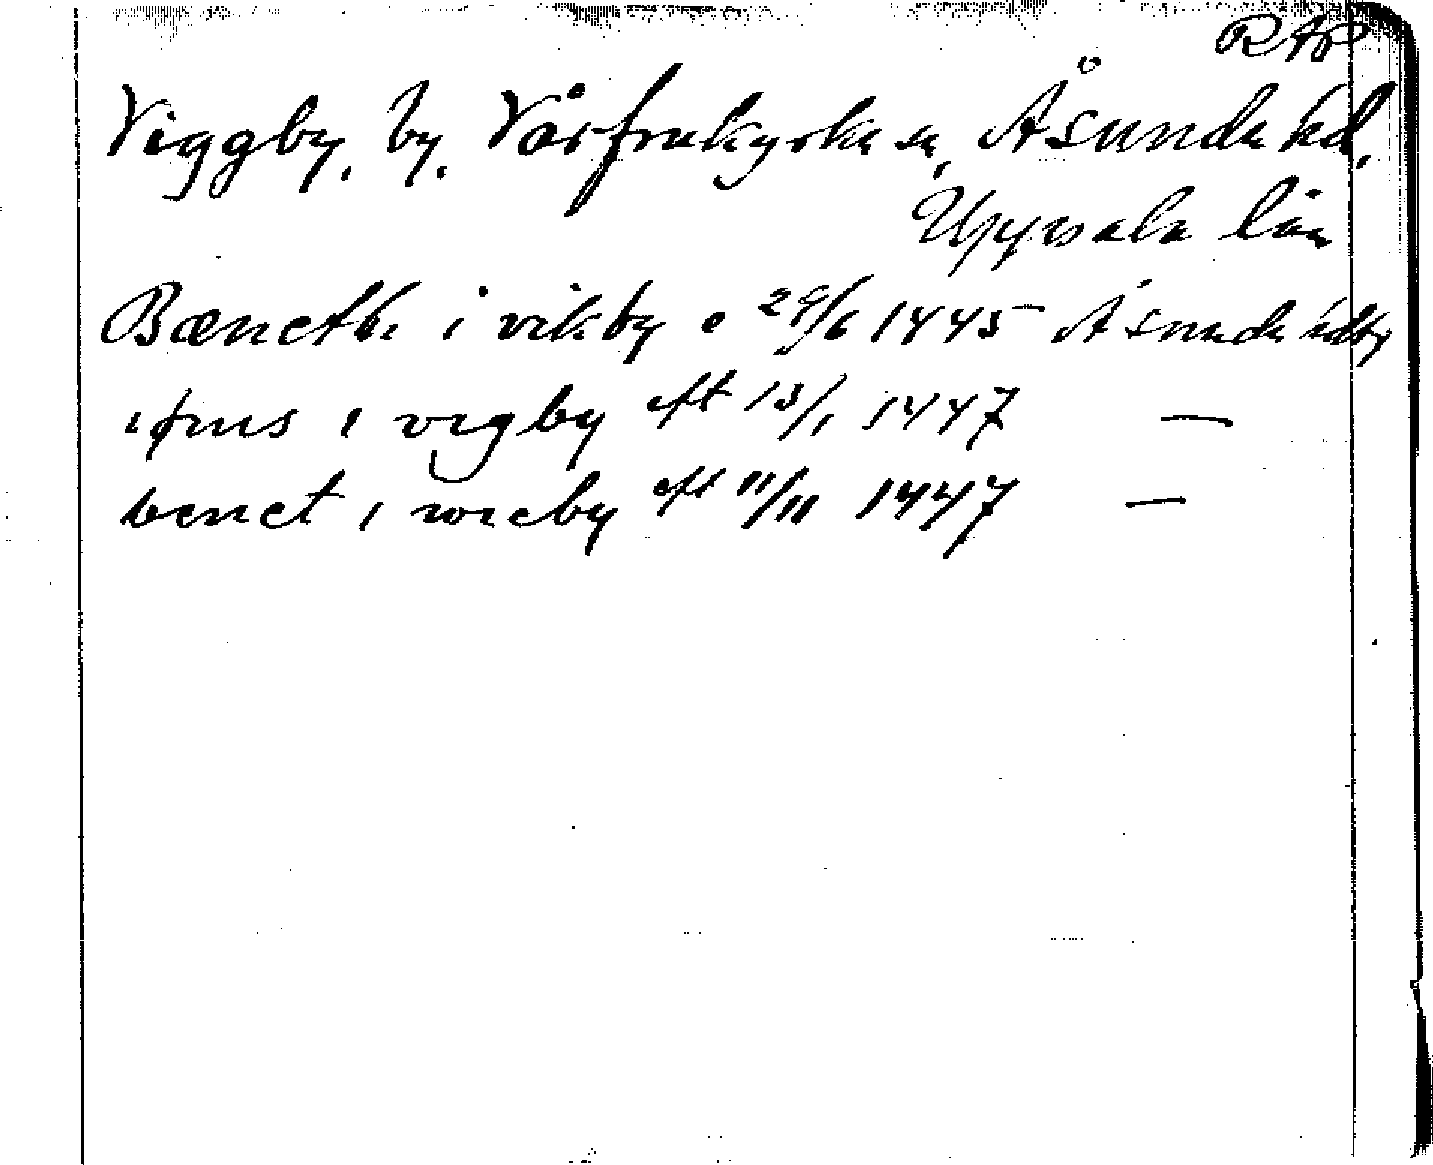 RAP
Viggby, by, Vårfrukyrka sn, Åsunda hd,
Uppsala län
Bæncth i vikby o 29/6 1445 Åsunda hdby
i vigby eft 13/1 1447 —
benct i wicby eft 11/11 1447 —